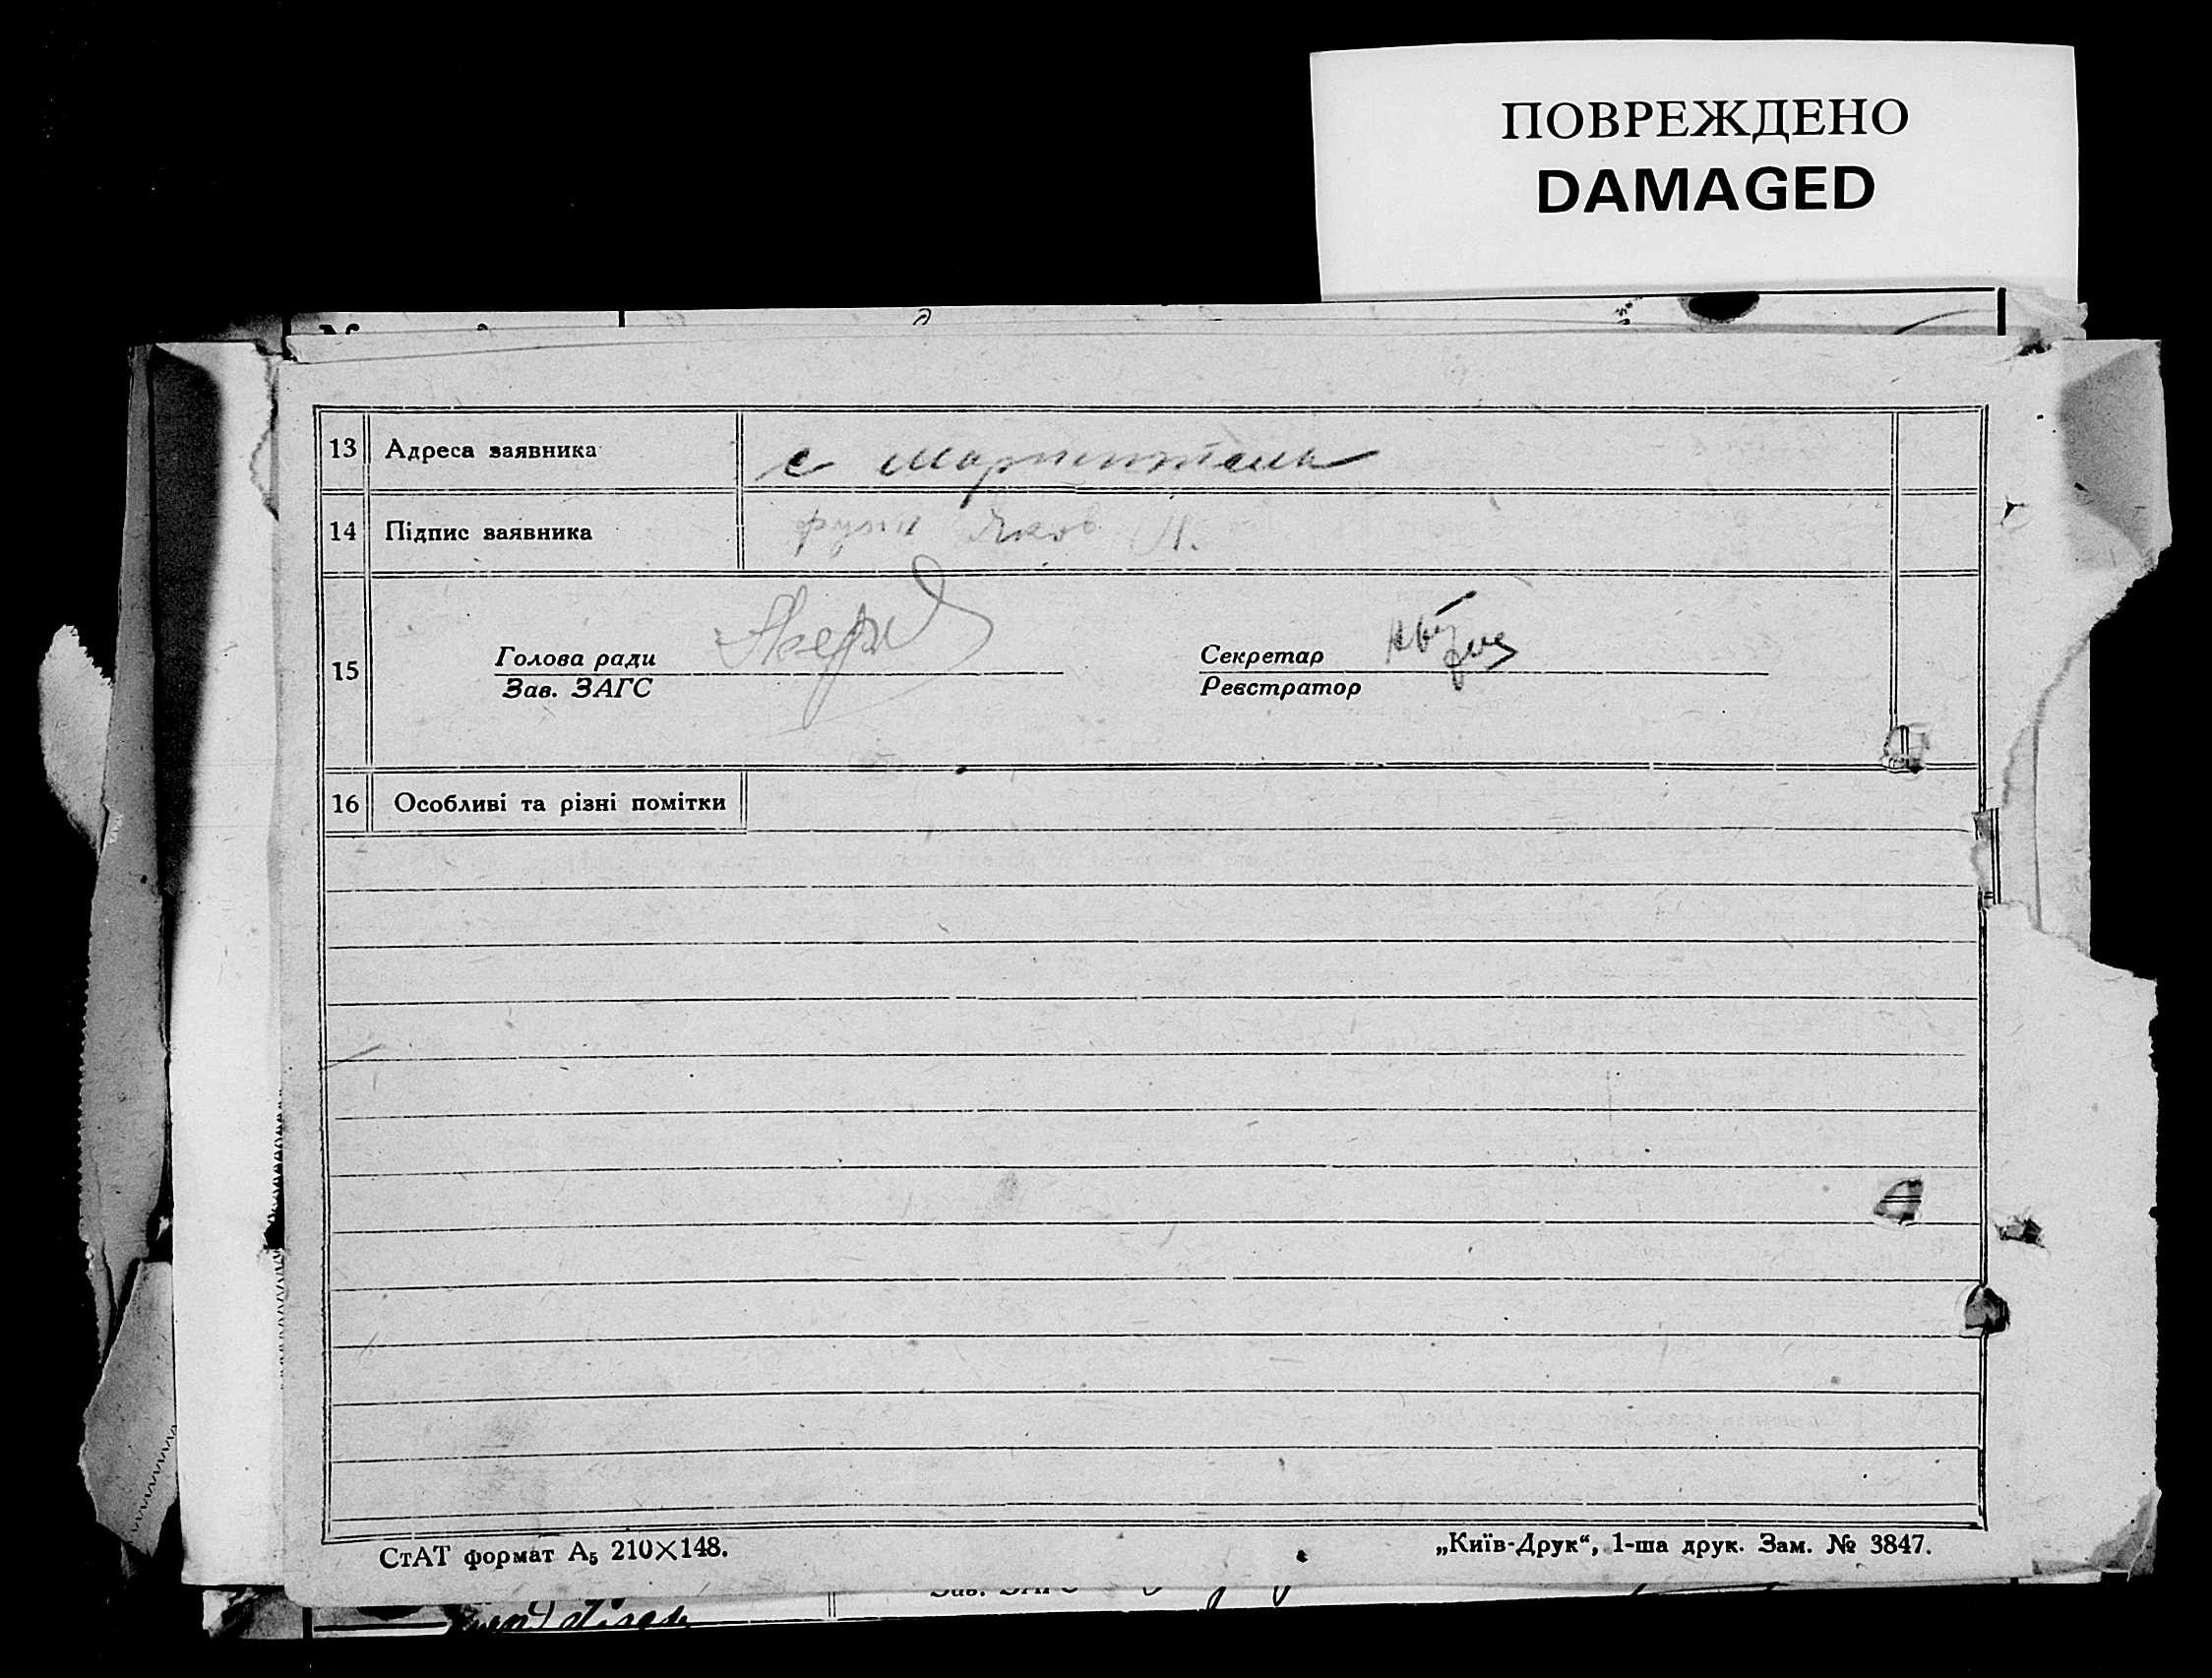 ПОВРЕЖДЕНО
DAMAGED
13 Адреса заявника с
14 Підпис заявника Яков
Голова ради Секретар
15
Зав. ЗАГС Реєстратор
16 Особливі та різні помітки
СтАТ формат А₅ 210×148. „Київ-Друк“, 1-ша друк. Зам. № 3847.
Зав. ЗАГС